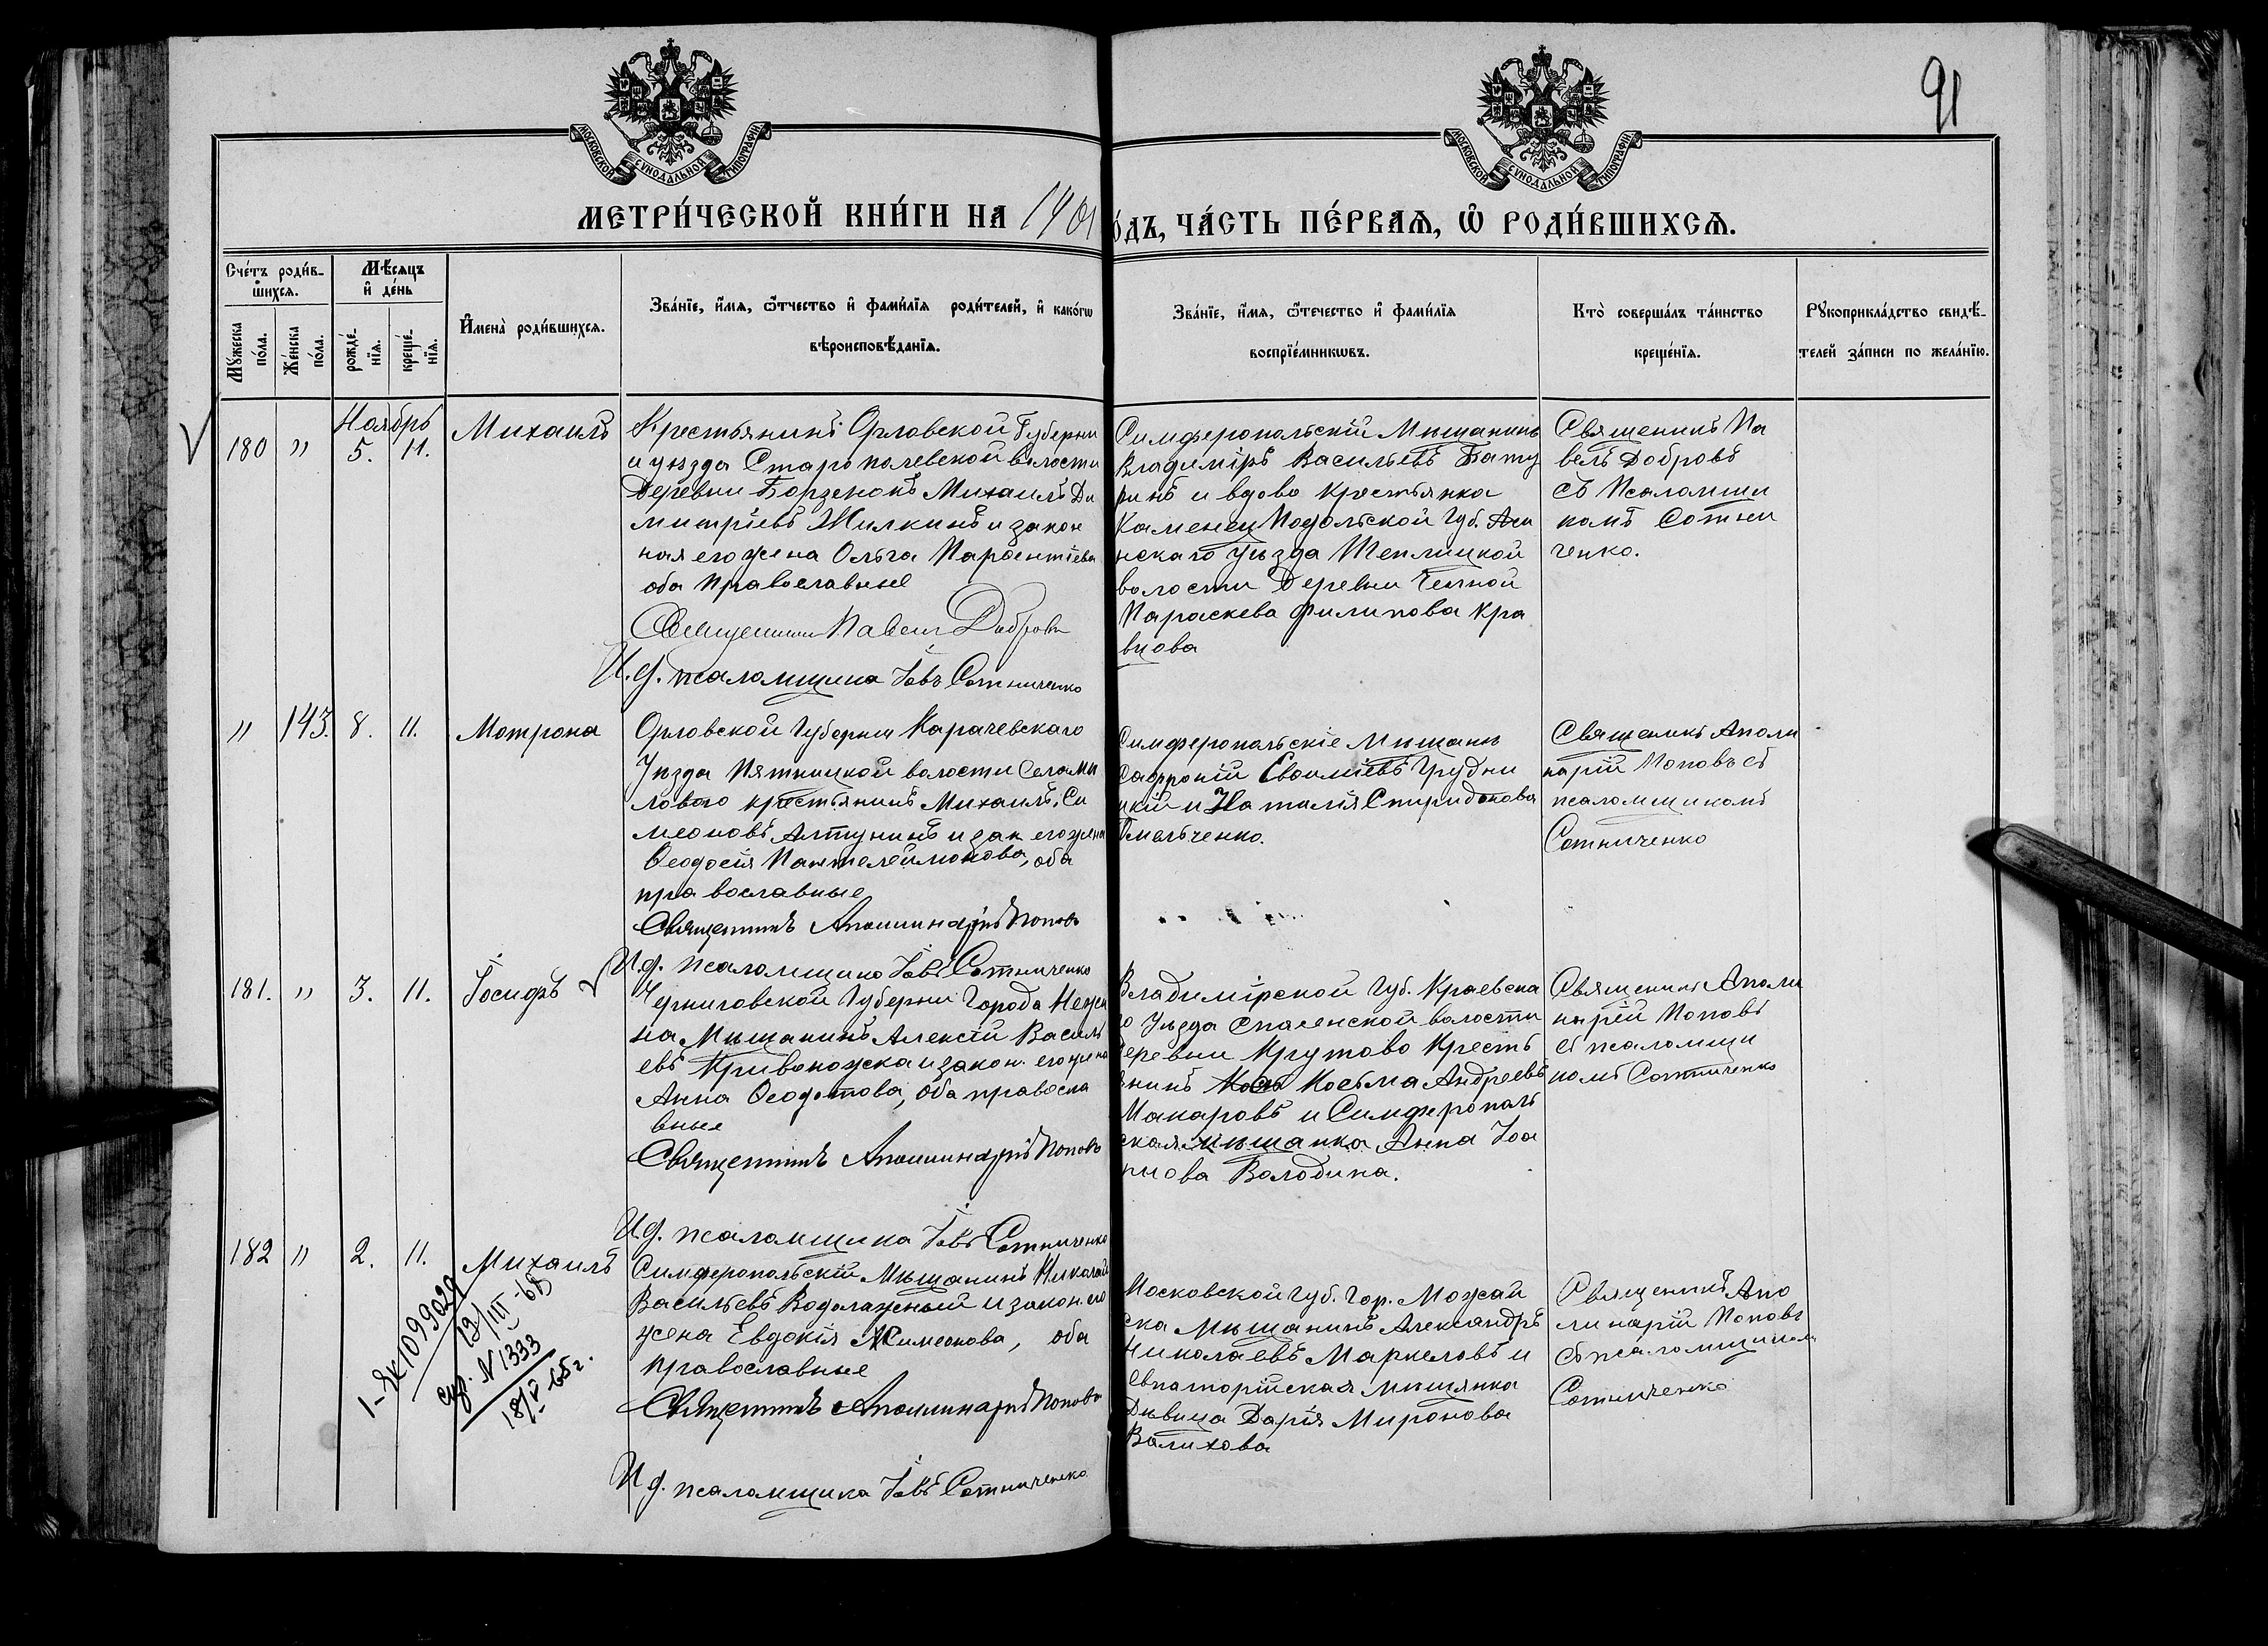 91
МОСКОВСКОЙ СѴНОДАЛЬНОЙ ТИПОГРАФІИ
МОСКОВСКОЙ СѴНОДАЛЬНОЙ ТИПОГРАФІИ
МЕТРИ́ЧЕСКОЙ КНИ́ГИ НА 1901
О́ДЪ, ЧА́СТЬ ПЕ́РВАѦ, Ѡ҆ РОДИ́ВШИХСѦ.
Сче́тъ роди́в-
шихсѧ.
Мꙋ́жеска по́ла.
Же́нска по́ла.
Мѣ́сѧцъ
и҆ де́нь
рожде́-
нїѧ.
креще́-
нїѧ.
И҆мена̀ роди́вшихсѧ.
Зва́нїе, и҆́мѧ, ѻ҆́тчество и҆ фами́лїѧ роди́телей, и҆ како́гѡ
вѣроисповѣ́данїѧ.
Зва́нїе, и҆́мѧ, ѻ҆те́чество и҆ фами́лїѧ
воспрїе́мникѡвъ.
Кто̀ соверша́лъ та́инство
креще́нїѧ.
Рꙋкоприкла́дство свидѣ́-
телей за́писи по жела́нїю.
Ноябрь
180 " 5. 11. Михаилъ
Крестьянинъ Орловской Губерни
и уѣзда Старополевской волости
Деревни Борзенокъ Михаилъ Ди
митріевъ Жилкинъ и закон
ная его жена Ольга Парѳентіева
оба православные
Священникъ Павелъ Добровъ
И. д. псаломщика Іовъ Сотниченко
Симферопольскій Мѣщанинъ
Владиміръ Васильевъ Бату
ринъ и вдова крестьянка
Каменец Подольской Губ.
нскаго уѣзда Теплицкой
волости Деревни
Параскева Филипова Кра
вцова
Священикъ Па
велъ Добровъ
съ Псаломщи
комъ Сотни
ченко.
" 143. 8. 11. Мотрона
Орловской Губерніи Карачевскаго
Уѣзда Пятницкой волости Села Ми
лового крестьянинъ Михаилъ Си
меоновъ Алтунинъ и зак его жена
Ѳеодосія Пантелеймонова, оба
православные
Священникъ Аполлинарій Поповъ
И.д. псаломщика Іовъ Сотниченко
Симферопольскіе Мѣщане
Сафроній Грудни
цкій и Наталія Спиридонова
Омельченко.
Священикъ Аполи
нарій Поповъ съ
псаломщикомъ
Сотниченко
181. " 3. 11. Іосифъ
Черниговской Губерни Города Нежи
на Мѣщанинъ Алексій Василь
евъ Кривоножска и закон. его жена
Анна Ѳеодотова, оба правосла
вные
Священникъ Аполлинарій Поповъ
И.д. псаломщика Іовъ Сотниченко
Владимірской Губ.
го Уѣзда Спасенской волости
Деревни Крутово Кресть
янинъ Косьма Андреевъ
Макаровъ и Симферополь
ская мѣщанка Анна Іоа
ннова Володина.
Священикъ Аполи
нарій Поповъ
съ псаломщи
комъ Сотниченко
182 " 2. 11. Михаилъ
Симферопольскій Мѣщанинъ Николай
Васильевъ Водолажный и закон. его
жена Евдокія Симеонова, оба
православные
Священникъ Аполлинарій Поповъ
И д. псаломщика Іовъ Сотниченко
Московской Губ. Гор. Можай
ска Мѣщанинъ Александръ
Николаевъ Маркеловъ и
Евпаторійская мѣщанка
Дѣвица Дарія Миронова
Валихова
Священникъ Апо
линарій Поповъ
съ псаломщикомъ
Сотниченко
1-ЯК 1099029
13/III-68
спр. N 1333
18/V-65 г.